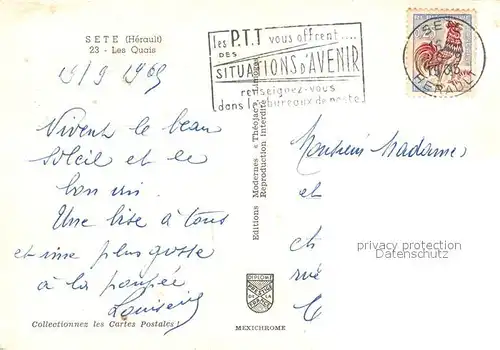 SETE (Hérault)
23 - Les Quais
15/9 1965
Vivent le beau
soleil et le
bon vin.
Une bise à tous
et une plus grosse
à la poupée
Louisein
Collectionnez les Cartes Postales !
les P.T.T vous offrent....
DES
SITUATIONS D'AVENIR
renseignez-vous
dans les bureaux de poste
SETE
HERAULT
Editions Modernes « Théojac », Limoges
Reproduction Interdite
MEXICHROME
Monsieur Madame
et
ch
privacy protection
Datenschutz